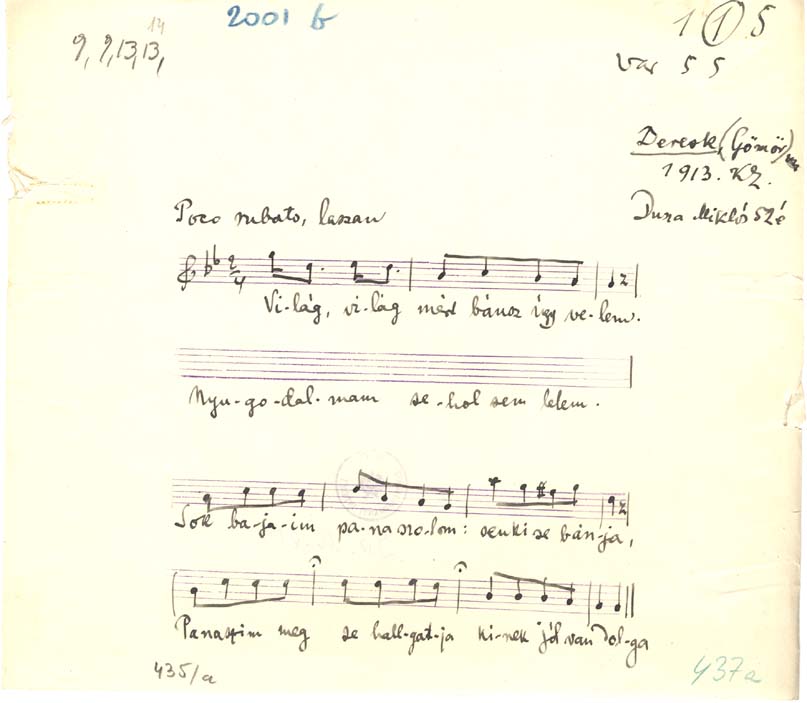 2001 b
1 1 5
14
9, 9, 13, 13,
var 5 5
Deresk (Gömör)
1913. KZ.
Duna Miklós 52 é
Poco rubato, lassan
2/4
Vi-lág, vi-lág mért bánsz így ve-lem.
Nyu-go-dal-mam se-hol sem lelem.
Sok ba-ja-im pa-na-szo-lom: senki se bán-ja,
Panaszim meg se hall-gat-ja ki-nek jól van dol-ga
435/a
437a